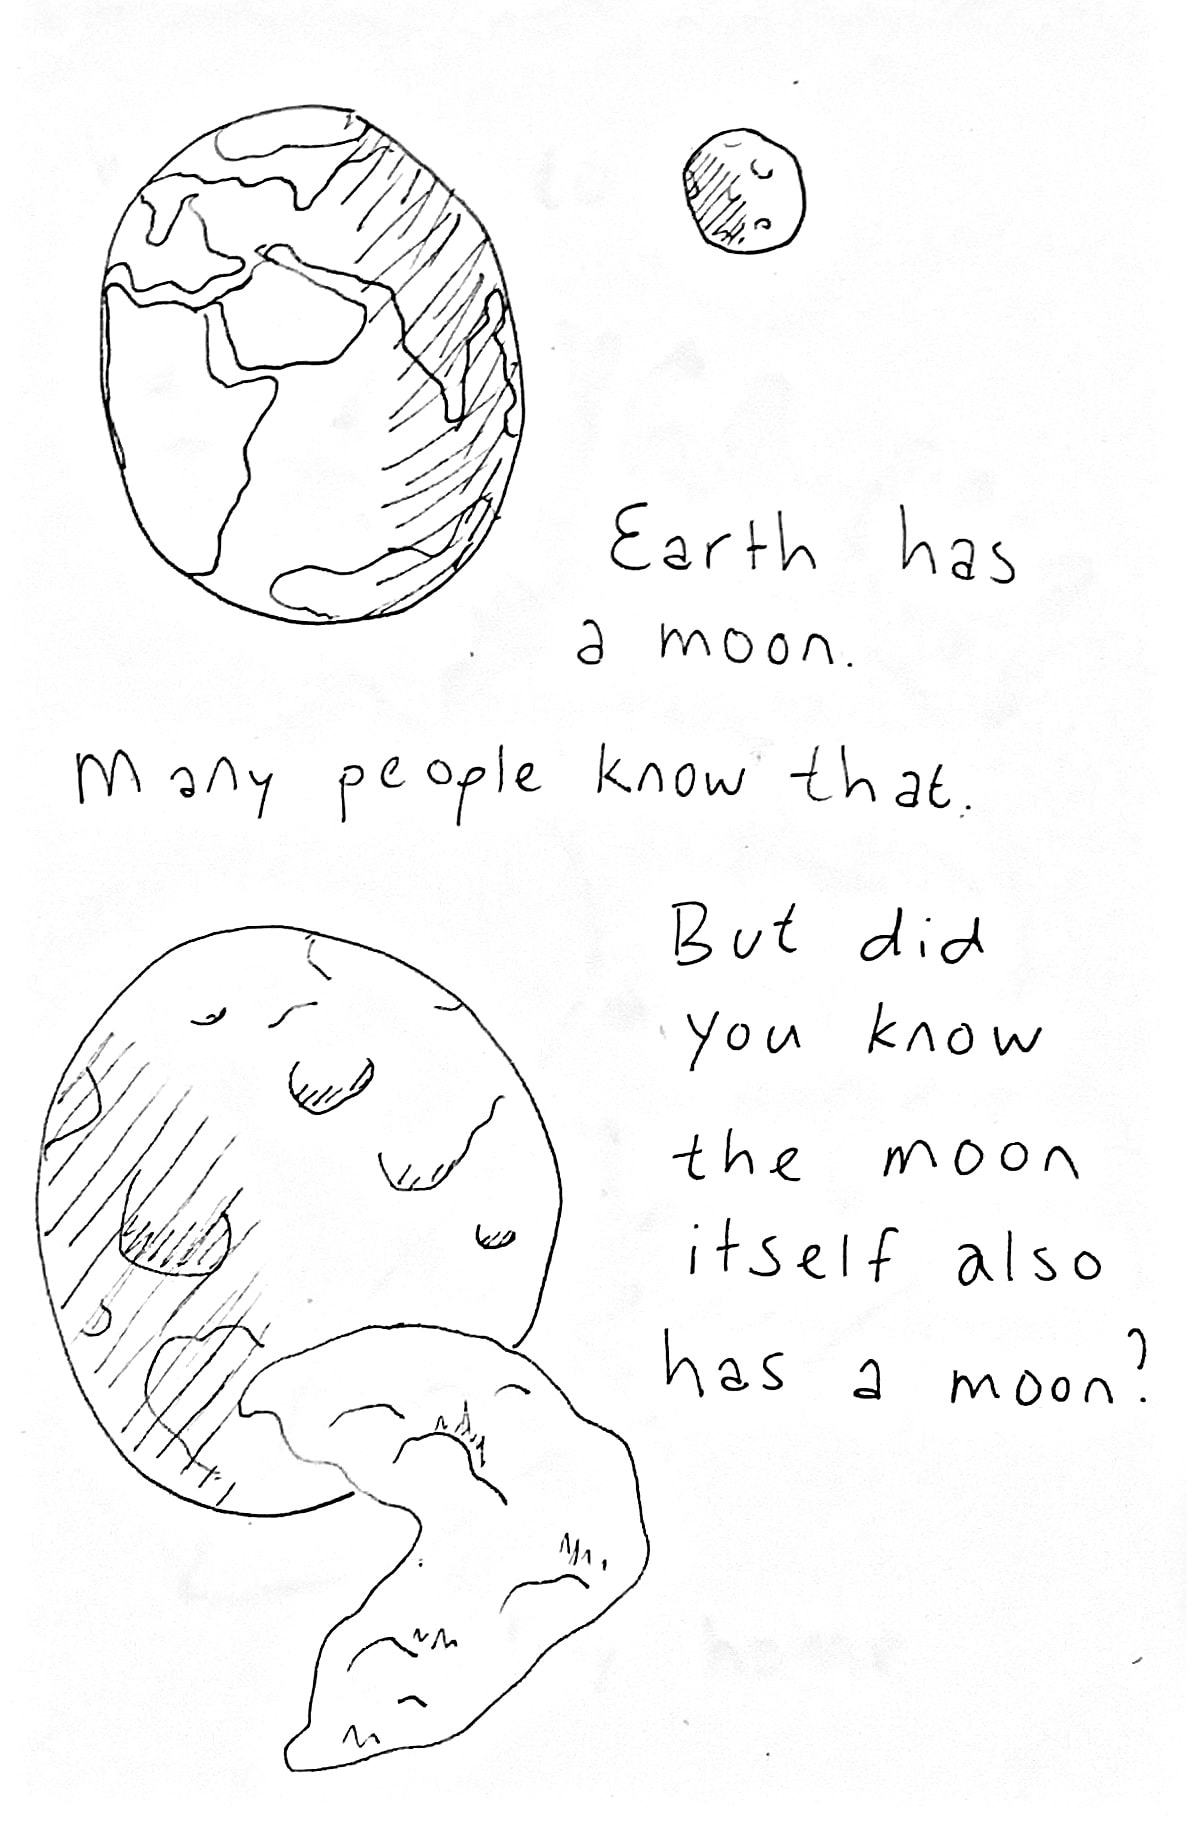 Earth has
a moon.
Many people know that.
But did
you know
the moon
itself also
has a moon?